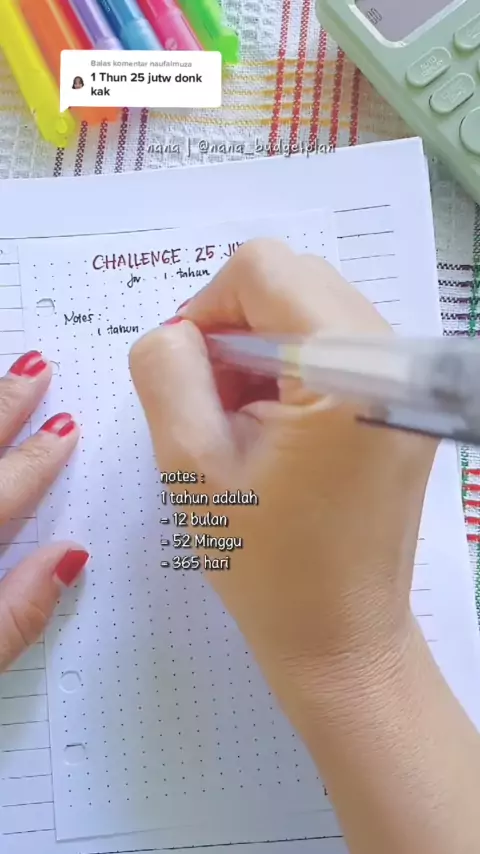 Balas komentar naufalmuza
1 Thun 25 jutw donk
kak
nana | @nana_budgetplan
CHALLENGE 25
for 1 tahun
Notes :
1 tahun
notes :
1 tahun adalah
= 12 bulan
= 52 Minggu
= 365 hari